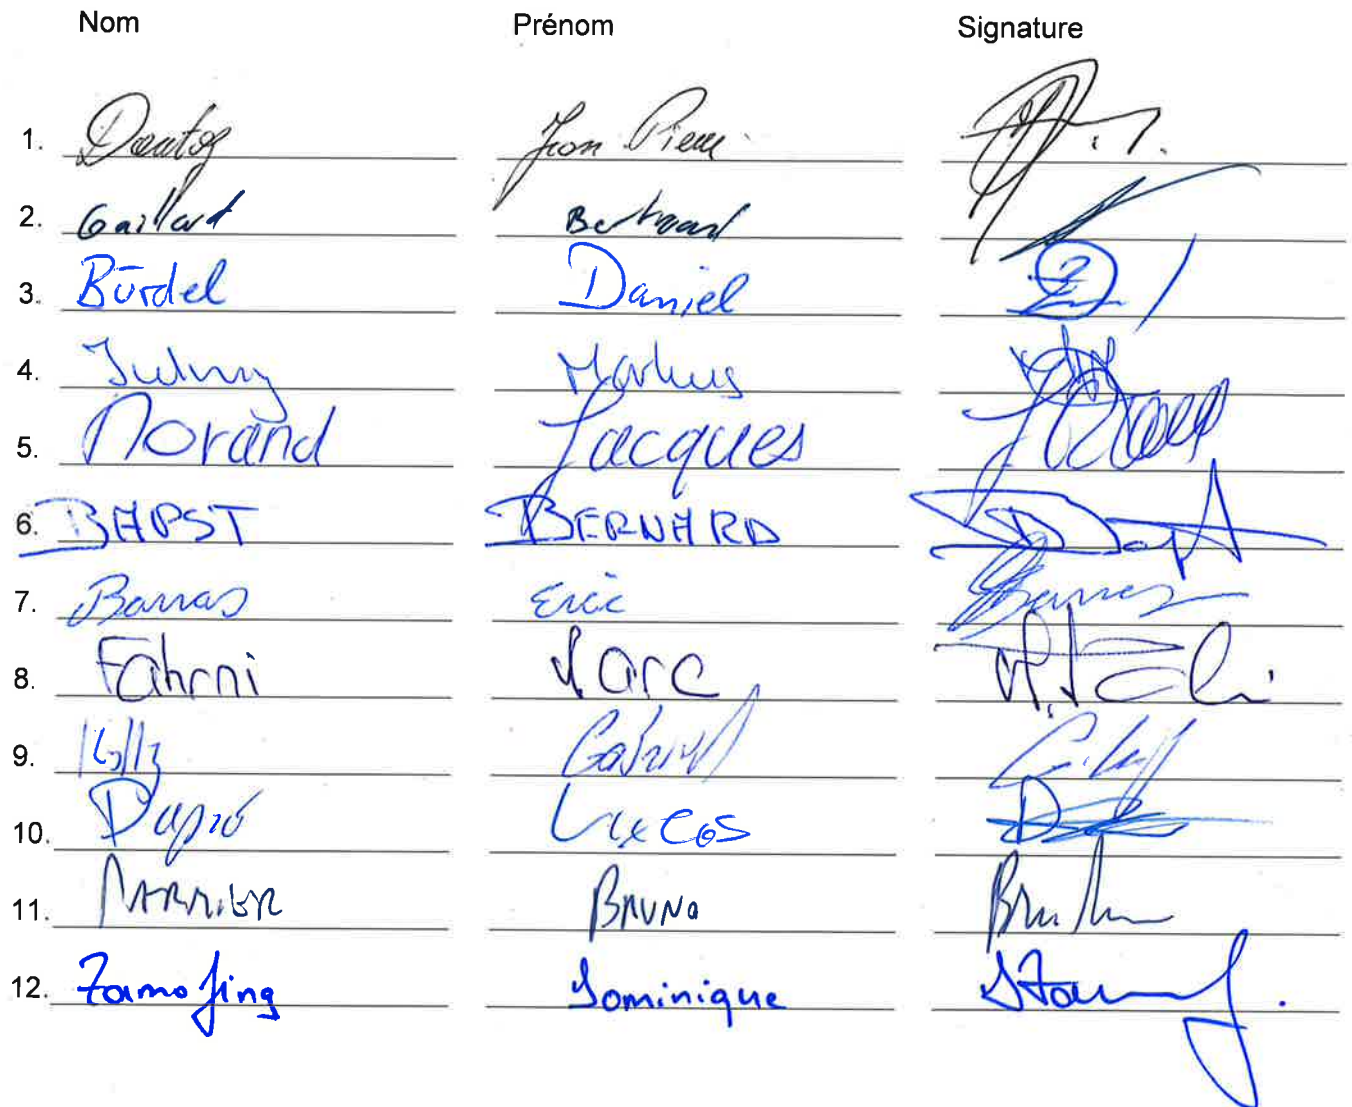 Nom Prénom Signature
1. Doutaz Jean Pierre
2. Gaillard Bertrand
3. Bürdel Daniel
4. Julmy Markus
5. Morand Jacques
6. BAPST BERNARD
7. Barras Eric
8. Fahrni Marc
9. Kolly Gabriel
10. Dupré Lucas
11. MARMIER BRUNO
12. Zamofing Dominique